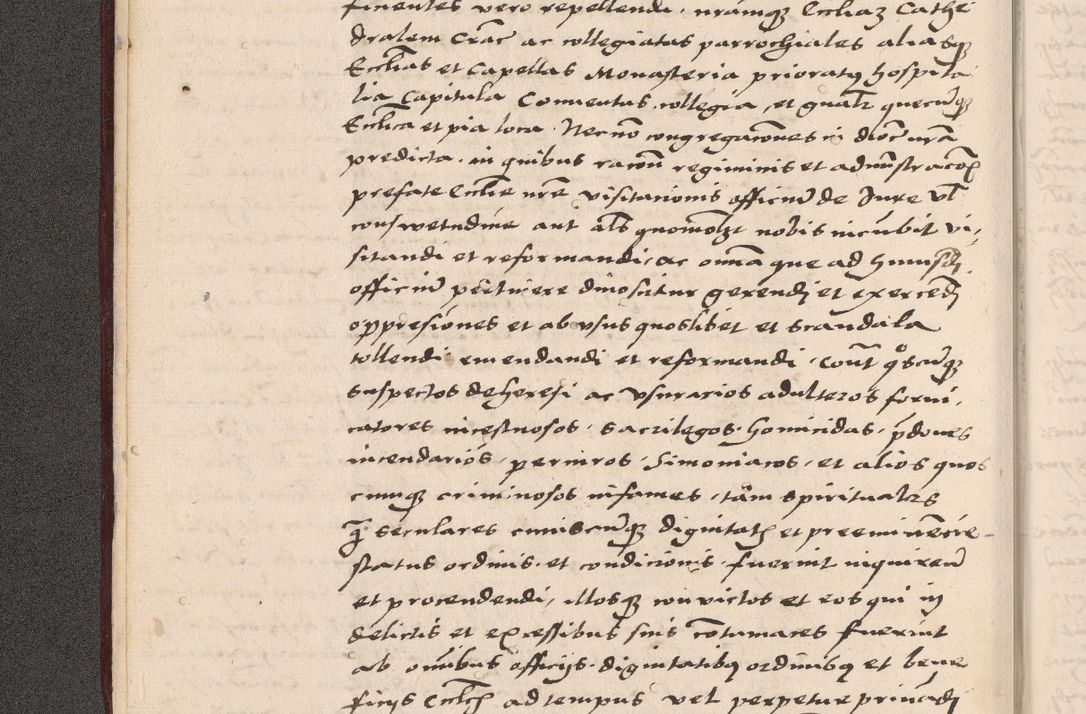 finentes vero repellendi, nramq3 Eccliaz Cathe
dralem Crac ac collegiatas parrochiales aliasq3
Ecclias et Capellas Monasteria prioratq hospita
lia Capitula Conuentus collegia, et gnalr quecuq3
Ecclica et pia loca. Necno congregacoes i dioc nra
predicta. in quibus racone regiminis et admnstracois
prefate Ecclie nre visitacionis officiu de Iure vl
conswetudine aut als quomolzt nobis incubit vi,
sitandi et reformandi ac omia que ad huiusdi,
officiu pertinere dinoscitur gerendi et exercedi
oppresiones et abusus quoslibet et scandala
tollendi emendandi et reformandi, Cont qoscuq3
suspectos de heresi ac vsurarios adulteros forni,
catores incestuosos, sacrilegos. homicidas, pdones
incendarios, periuros, Simoniacos, et alios quos
cumq3 criminosos infames, tam spirituales
qz seculares cuiuscuq3 dignitatis et preeminecie
status ordinis, et condicionis, fuerint inquirend
et procendendi, illosq3 convictos et eos qui in
delictis et excessibus suis cotumaces fuerint
ab omibus officijs, dignitatibq ordinibq et bene
ficijs Ecclch ad tempus vel perpetue priuadi